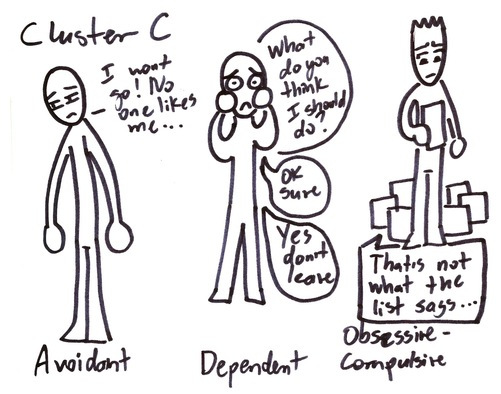 Cluster C
I won't
go! No
one likes
me...
What
do you
think
I should
do?
OK
sure
Yes
don't
leave
That's not
what the
list says...
Avoidant
Dependent
Obsessive-
Compulsive